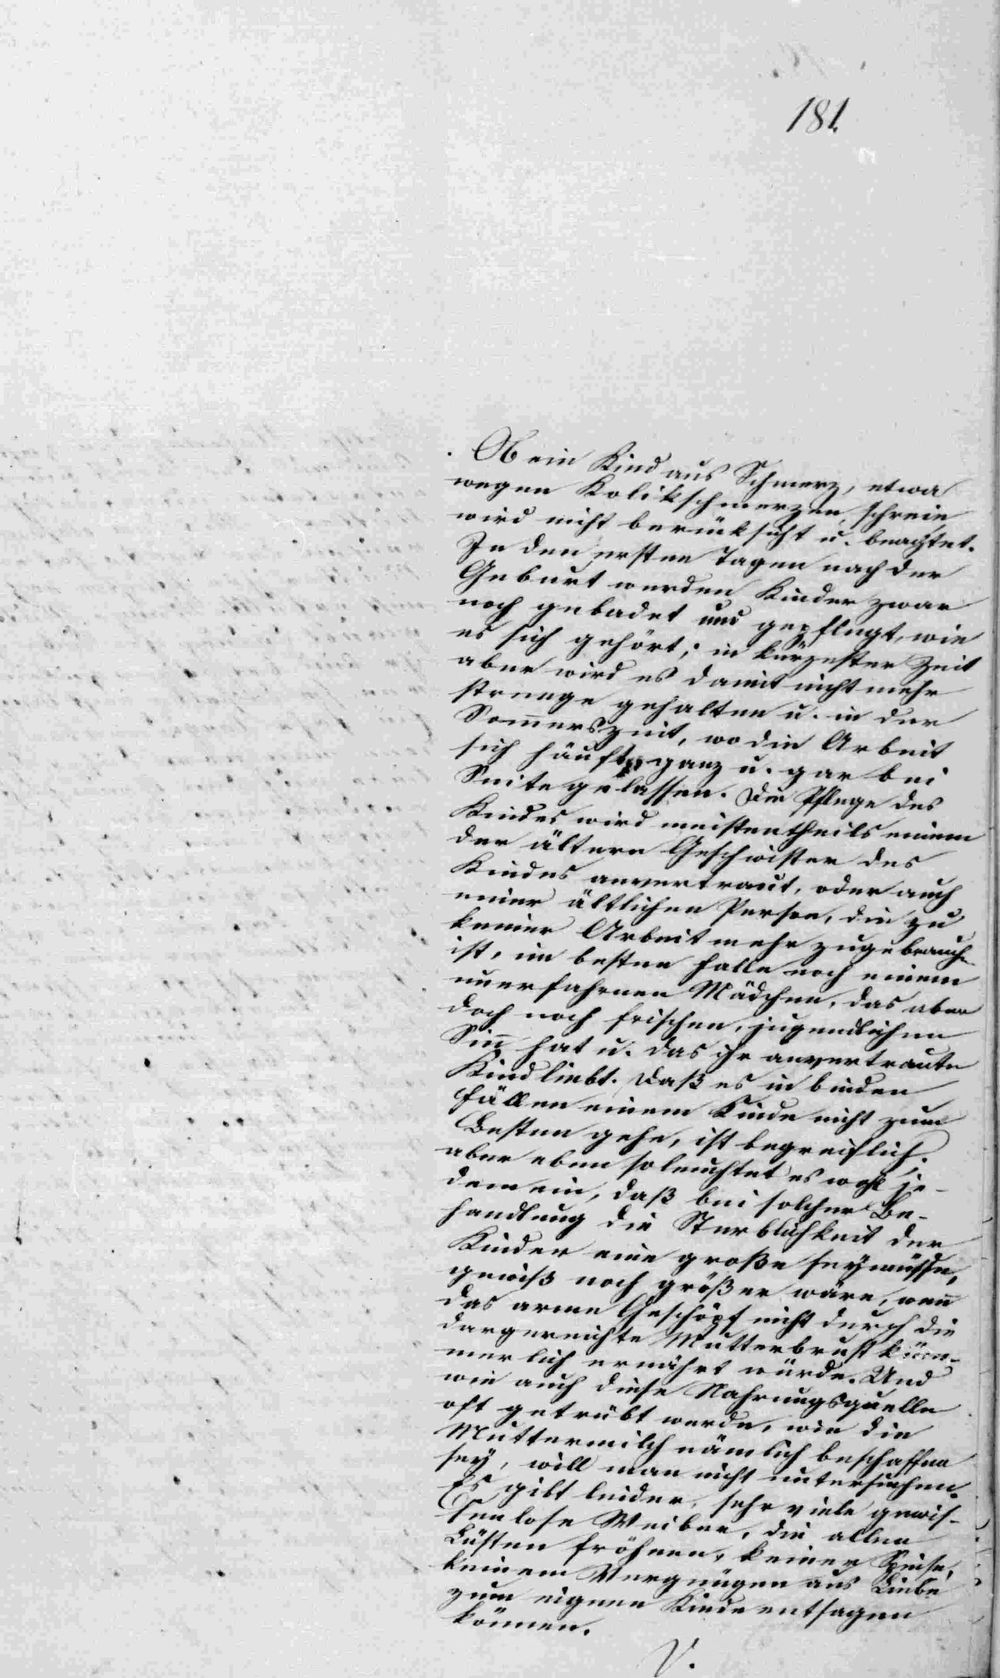 181.
Ob ein Kind aus Schmerz, etwa
wegen Kolikschmerzen schreie
wird nicht berüksicht u. beachtet.
In den ersten Tagen nach der
Geburt werden Kinder zwar
noch gebadet und gepflegt, wie
es sich gehört; in kürzester Zeit
aber wird es damit nicht mehr
strenge gehalten u. in der
Somerszeit, wo die Arbeit
sich häuft, ganz u. gar bei
Seite gelassen. Die Pflege des
Kindes wird meistentheils einem
der ältern Geschwister des
Kindes anvertraut, oder auch
einer ältlichen Person, die zu
keiner Arbeit mehr zugebrauchen
ist, im besten Falle noch einem
unerfahrnen Mädchen, das aber
doch noch frischen, jugendlichen
Sinn hat u. das ihr anvertraute
Kind liebt. Daß es in beiden
Fällen einem Kinde nicht zum
Besten gehe, ist begreiflich.
aber eben so leuchtet es wohl je-
dem ein, daß bei solcher Be-
handlung die Sterblichkeit der
Kinder eine große sey müsse,
gewiß noch größer wäre, wenn
das arme Geschöpf nicht durch die
dargereichte Mutterbrust küm-
merlich ernährt würde. Und
wie auch diese Nahrungsquelle
oft getrübt werde, wie die
Muttermilch nämlich beschaffen
sey, will man nicht untersuchen.
Es gibt leider, sehr viele gewis-
senlose Weiber, die allen
Lüsten fröhnen, keiner Speise,
keinem Vergnügen aus Liebe
zum eignen Kinde entsagen
können.
V.